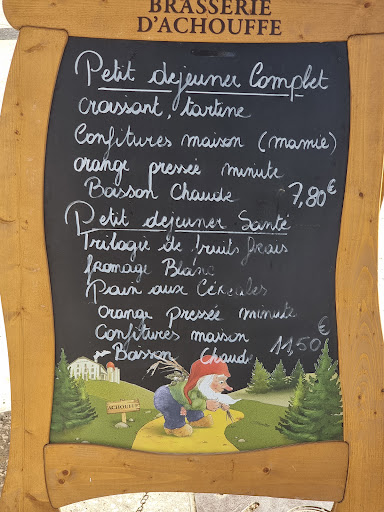 BRASSERIE
D'ACHOUFFE
Petit dejeuner Complet
croissant, tartine
Confitures maison (mamie)
orange pressée minute
Boisson Chaude 7,80€
Petit dejeuner Santé
Trilogie de fruits frais
fromage Blanc
Pain aux Céréales
Orange Pressée minute
Confitures maison
Boisson Chaude 11,50€
ACHOUFFE